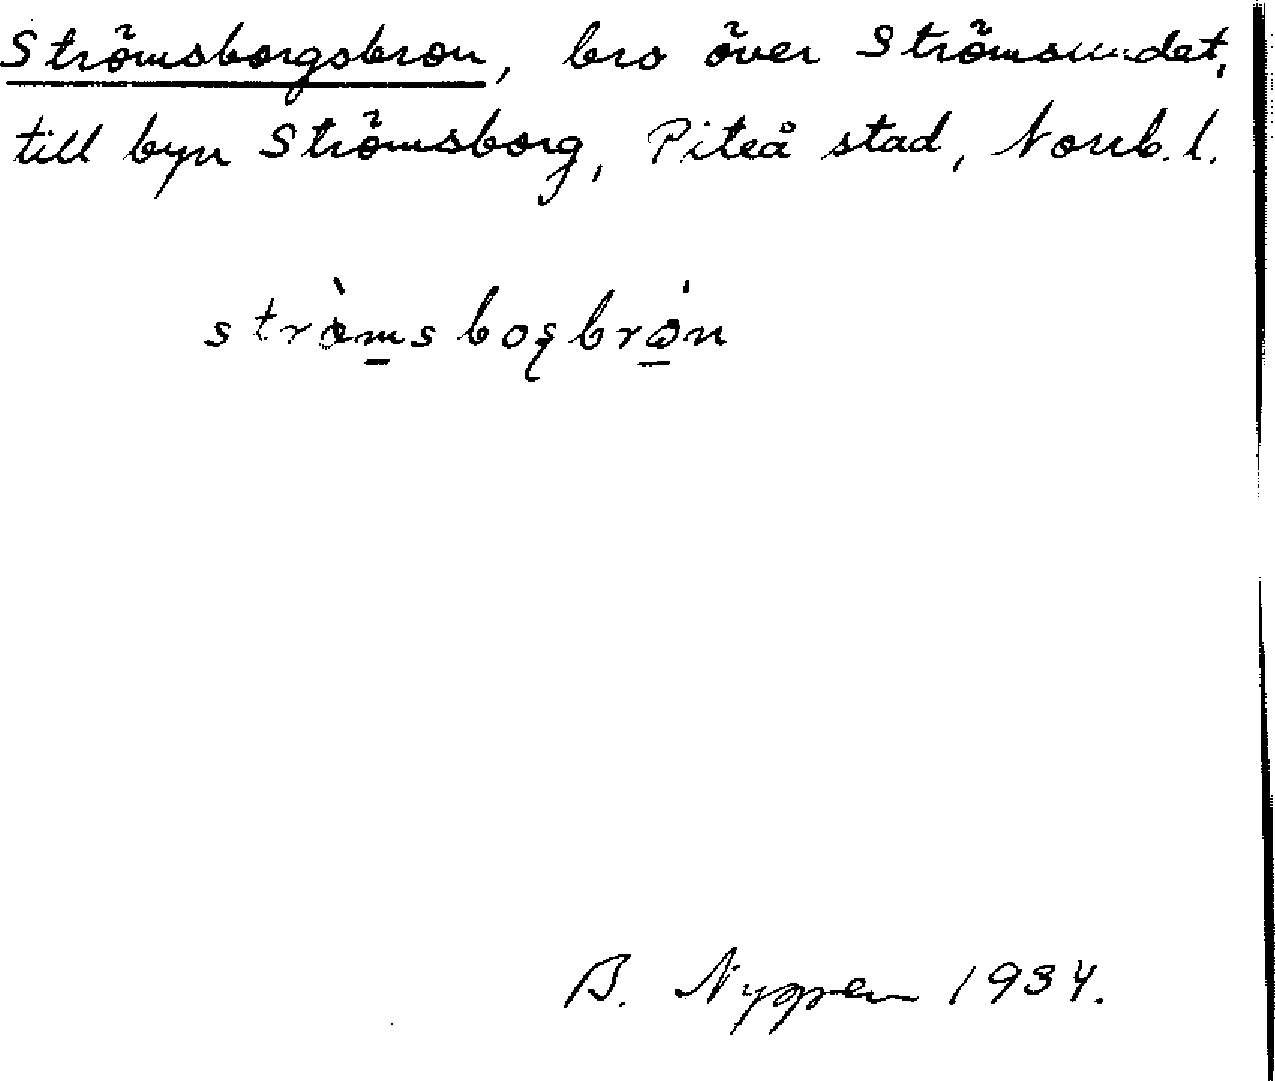 Strömsborgsbron, bro över Strömsundet,
till byn Strömsborg, Piteå stad, Norrb. l.
B. Nygren 1934.